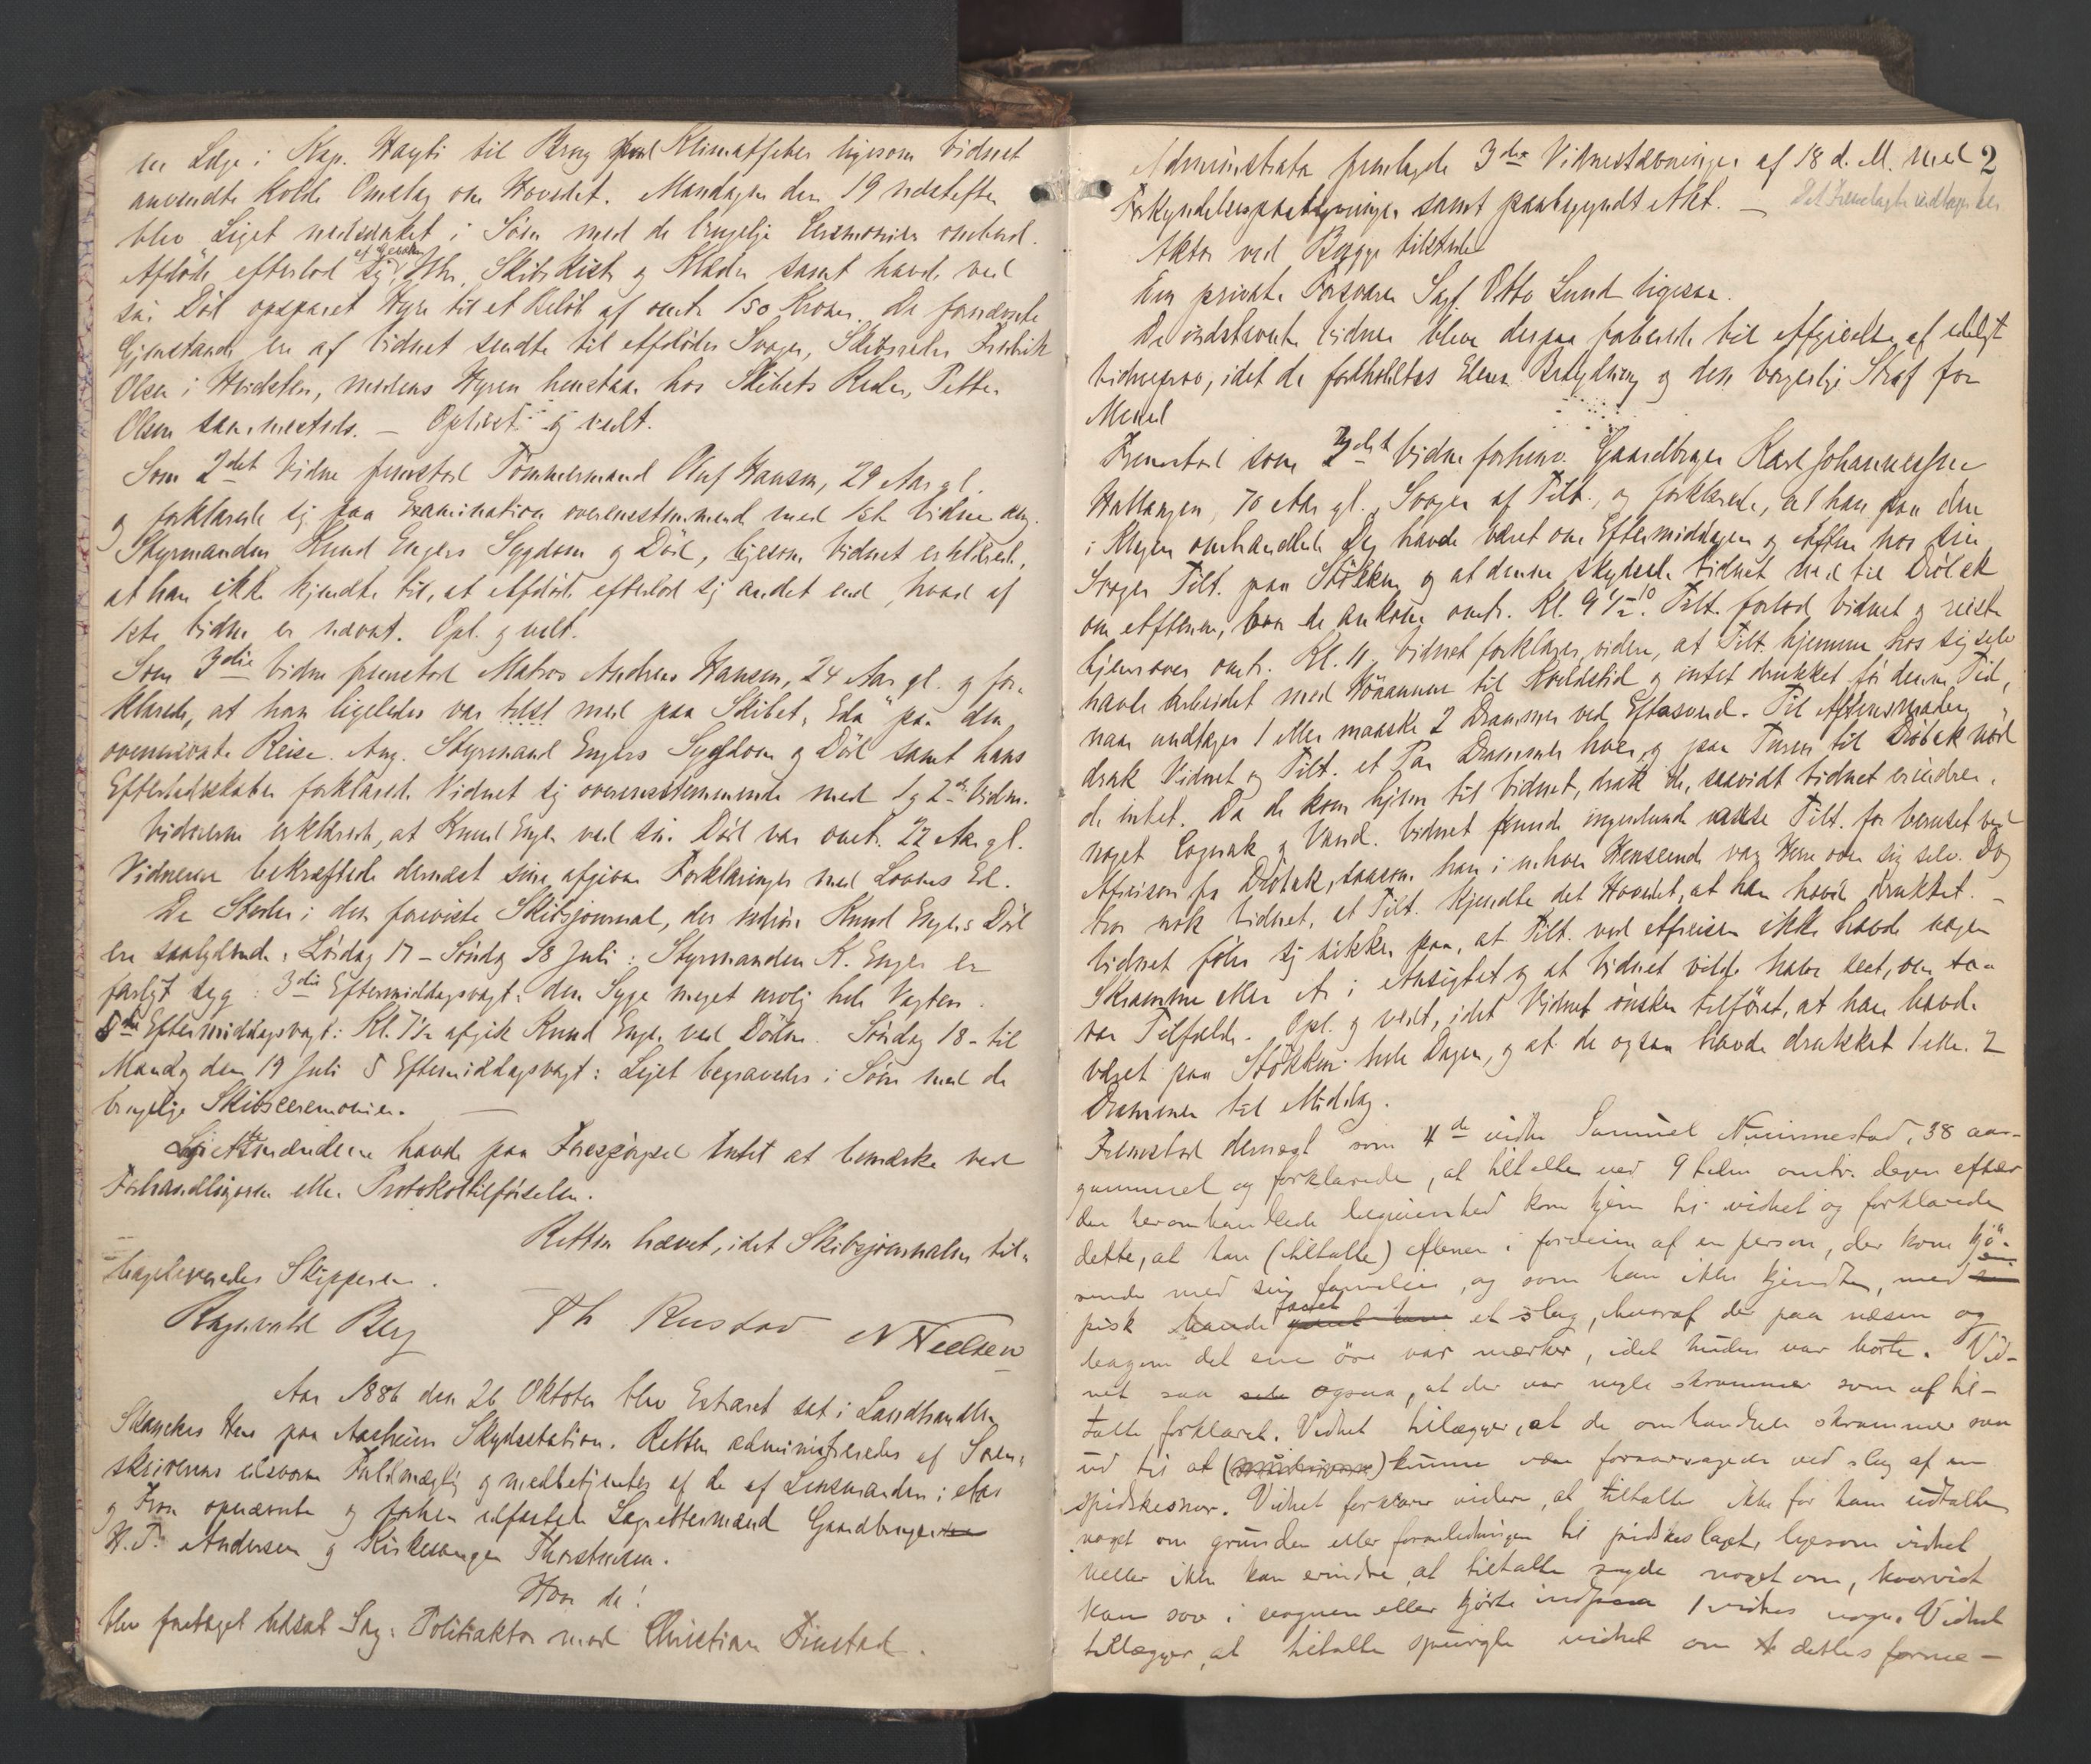 en Læge i Kap. Hayti til Brug mod Klimatfeber ligesom Vidnet
anvendte kolde Omslag om Hovedet. Mandagen den 19 næstefter
blev Liget nedsænket i Søen med de brugelige Ceremonier ombord.
Afdöde efterlod sig af Gjenst. Uhr, Skibskiste og Klæder samt havde ved
sin Död opsparet Hyre til et Belöb af omtr. 150 Kroner. De fornævnte
Gjenstande ere af Vidnet sendte til Afdödes Svoger, Skibsreder Fredrik
Olsen i Hvidsten, medens Hyren henstaar hos Skibets Reder, Petter
Olsen sammesteds. — Oplæst og vedt.
Som 2det Vidne fremstod Tömmermand Oluf Hansen, 29 Aar gl.
og forklarede sig paa Examination overensstemmende med 1ste Vidne ang.
Styrmanden Knud Engers Sygdom og Död, ligesom Vidnet erklærede,
at han ikke kjendte til, at Afdöde efterlod sig andet end, hvad af
1ste Vidne er nævnt. Opl. og vedt.
Som 3die Vidne fremstod Matros Andreas Hansen, 24 Aar gl. og for-
klarede, at han ligeledes var tilst med paa Skibet "Eda" paa den
ovennævnte Reise. Ang. Styrmand Engers Sygdom og Död samt hans
Efterladenskaber forklarede Vidnet sig overensstemmende med 1 og 2det Vidne.
Vidnerne erklærede, at Knud Enger ved sin Död var omtr. 22 Aar gl.
Vidnerne bekræftede dernæst sine afgivne Forklaringer med Lovens Ed.
De Steder i den foreviste Skibsjournal, der vedröre Knud Engers Död
ere saalydende: Lördag 17 – Söndag 18 Juli: Styrmanden K. Enger er
farligt syg: 3die Eftermiddagsvagt: den Syge meget urolig hele Vagten.
5te Eftermiddagsvagt: Kl. 7½ afgik Knud Enger ved Döden. Söndag 18 – til
Mandag den 19 Juli 5 Eftermiddagsvagt: Liget begravedes i Söen med de
brugelige Skibsceremonier. —
Lagrettesmændene havde paa Forespörgsel Intet at bemærke ved
Forhandlingerne eller Protokoltilförselen.
Retten hævet, idet Skibsjournalen til-
bageleveredes Skipperen.
Ragnvald Berg Th Rustad N Neelsen
Aar 1886 den 26 Oktober blev Extraret sat i Landhandler
Skanckes Hus paa Aasheim Skydsstation. Retten administreredes af Soren-
skriverens edsvorne Fuldmægtig og medbetjentes af de af Lensmanden i Aas
og Fron opnævnte og forhen edfæstede Lagrettesmænd Gaardbrugerne
H. T. Andersen og Kirkesanger Thorstensen.
Hvor da!
blev foretaget udsat Sag: Politiaktor mod Christian Finstad.
2
Administrator fremlagde 3de Vidnestævninger af 18 d. M. med
Forkyndelsespaategninger samt paabegyndt Akt. — Det Fremlagte vedtages her
Aktor ved Brygge tilstede
Den private Forsvarer Sagf. Otto Lund ligesaa.
De indstevnte Vidner bleve derpaa foreholdt til Afgivelse af edeligt
Vidneprov, idet de foreholdtes Edens Betydning og den borgerlige Straf for
Mened
Fremstod som 3die Vidne forhenv. Gaardbruger Karl Johannessen
Hallangen, 70 Aar gl., Svoger af Tilt., og forklarede, at han paa den
i Klagen omhandlede Dag havde været om Eftermiddagen og Aften hos sin
Svoger Tilt. paa Stökken og at denne skydsede Vidnet ned til Dröbak
om Aftenen, hvor de ankom omtr. Kl. 9½–10. Tilt. forlod Vidnet og reiste
hjemover omtr. Kl. 11. Vidnet forklarer videre, at Tilt. hjemme hos sig selv
havde arbeidet med Höaannen til Kveldstid og intet drukket för denne Tid,
naar undtages 1 eller maaske 2 Drammer ved Eftasverd. Til Aftensmaden
drak Vidnet og Tilt. et Par Drammer hver, og paa Turen til Dröbak nöd
de intet. Da de kom hjem til Vidnet, drak de, saavidt Vidnet erindrer,
noget Cognak og Vand. Vidnet kunde ingenlunde ansee Tilt. for beruset ved
Afreisen fra Dröbak, saasom han i enhver Henseende var Herre over sig selv. Dog
tror nok Vidnet, at Tilt. kjendte det i Hovedet, at han havde drukket. —
Vidnet föler sig sikker paa, at Tilt. ved Afreisen ikke havde nogen
Skramme eller Ar i Ansigtet og at Vidnet vilde have seet, om saa
var Tilfælde. Opl. og vedt, idet Vidnet önsker tilföiet, at han havde
været paa Stökken hele Dagen, og at de ogsaa havde drukket 1 eller 2
Drammer til Middag.
Fremstod dernæst som 4de vidne Samuel Nummestad, 38 aar
gammel og forklarede, at tiltalte ved 9 tiden omtr. dagen efter
den heromhandlede begivenhed kom hjem til vidnet og forklarede
dette, at han (tiltalte) aftenen i forveien af en person, der kom kjö-
rende med sin familie, og som han ikke kjendte, med en
pisk havde faaet et slag, hvoraf der paa næsen og
bagom det ene öre var mærker, idet huden var borte. Vid-
net saa ogsaa, at der var nogle skrammer som af til-
talte forklaret. Vidnet tillægger, at de omhandlede skrammer saa
ud til at kunne være foraarsagede ved slag af en
spidskesnor. Vidnet forklarer videre, at tiltalte ikke for ham udtalte
noget om grunden eller foranledningen til pidskeslaget, ligesom vidnet
heller ikke kan erindre, at tiltalte sagde noget om, hvorvidt
han sov i vognen eller kjörte ind paa vidnes vogn. Vidnet
tillægger, at tiltalte spurgte vidnet om dettes forme-